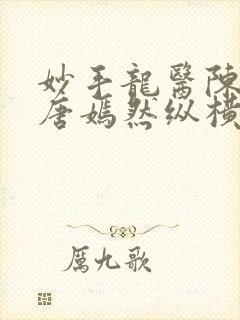 妙手龍醫陳
唐嫣然纵横
厲九歌